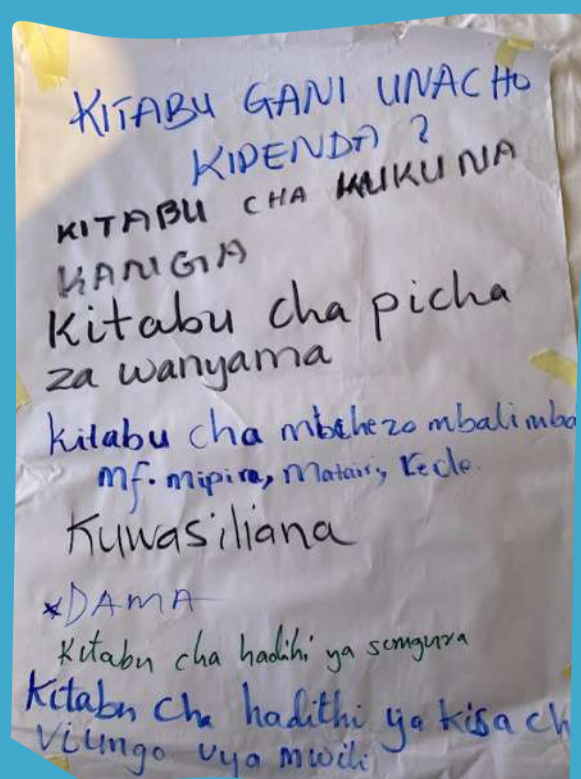 KITABU GANI UNACHO
KIPENDA ?
KITABU CHA KUKU NA
KANGA
Kitabu cha picha
za wanyama
kitabu cha mbchezo mbalimba
mf. mipira, Matairi, rede.
Kuwasiliana
*DAMA
Kitabu cha hadihi ya sungura
Kitabu cha hadithi ya kisa ch
viungo vya mwili